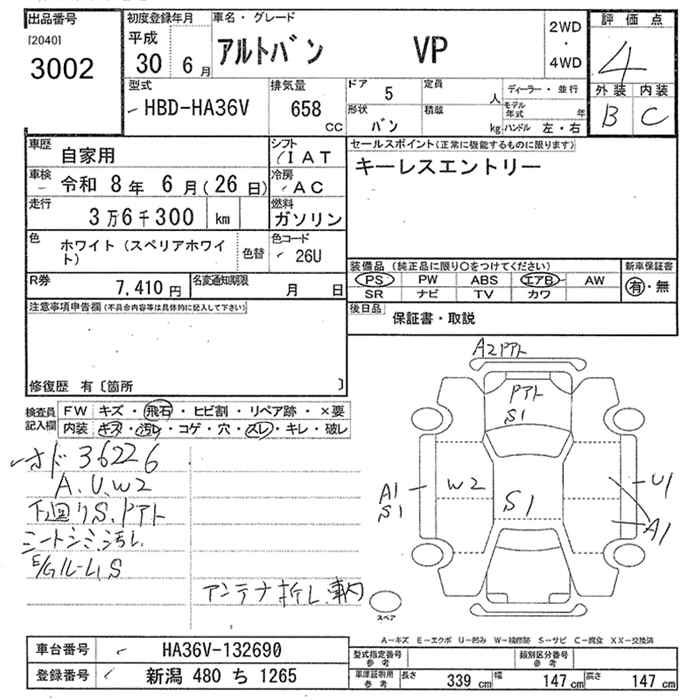 出品番号
[2040]
3002
初度登録年月
平成
30 年 6 月
車名・グレード
アルトバン VP
2WD
・
4WD
評価点
4
外装 内装
B C
型式
HBD-HA36V
排気量
658
CC
ドア 5
形状 バン
定員 人
積載 kg
ディーラー・並行
モデル年式 年
ハンドル 左・右
車歴 自家用
シフト IAT
車検 令和 8 年 6 月 (26 日)
冷房 AC
走行 3万6千300 km
燃料 ガソリン
色 ホワイト (スペリアホワイト)
色替
色コード 26U
R券 7,410 円
名変通知期限 月 日
セールスポイント(正常に機能するものに限ります)
キーレスエントリー
装備品 (純正品に限り○をつけてください)
PS PW ABS エアB AW
SR ナビ TV カワ
新車保証書
有・無
後日品 保証書・取説
注意事項申告欄 (不具合内容等は具体的に記入して下さい)
修復歴 有 〔箇所 〕
検査員記入欄
FW キズ・飛石・ヒビ割・リペア跡・×要
内装 キズ・汚レ・コゲ・穴・スレ・キレ・破レ
オド 36226
A.U.W2
下廻りS.Pアト
シートシミ.汚レ
E/Gルーム.S
アンテナ折レ.車内
A2Pアト
Pアト
S1
A1
S1
W2
S1
U1
A1
スペア
A−キズ E−エクボ U−凹み W−補修跡 S−サビ C−腐食 XX−交換済
車台番号 HA36V-132690
登録番号 新潟 480 ち 1265
型式指定番号 参考
類別区分番号 参考
車庫証明用 参考
長さ 339 cm 幅 147 cm 高さ 147 cm